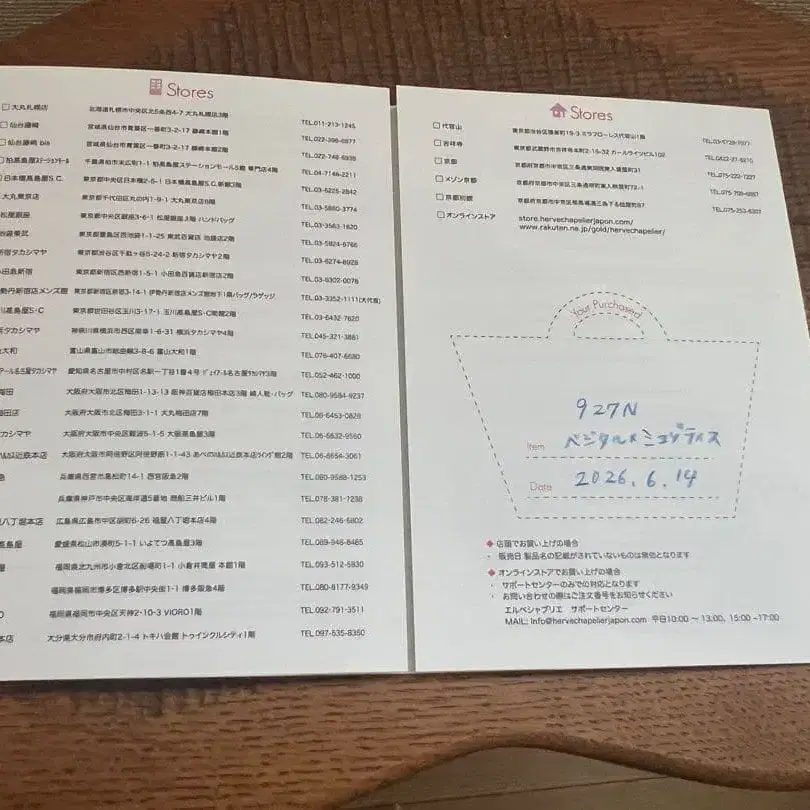 Stores
大丸札幌店 北海道札幌市中央区北5条西4-7 大丸札幌店3階 TEL.011-213-1245
仙台藤崎 宮城県仙台市青葉区一番町3-2-17 藤崎本館1階 TEL.022-398-6877
仙台藤崎 bis 宮城県仙台市青葉区一番町3-2-17 藤崎本館2階
柏髙島屋ステーションモール 千葉県柏市末広町1-1 柏髙島屋ステーションモール5階 専門店4階 TEL.04-7148-2211
日本橋髙島屋S.C. 東京都中央区日本橋2-5-1 日本橋髙島屋S.C.新館3階 TEL.03-6225-2842
大丸東京店 東京都千代田区丸の内1-9-1 大丸東京店8階 TEL.03-5860-3774
松屋銀座 東京都中央区銀座3-6-1 松屋銀座2階 ハンドバッグ TEL.03-3563-1620
袋東武 東京都豊島区西池袋1-1-25 東武百貨店 池袋店2階 TEL.03-5924-6766
新宿タカシマヤ 東京都渋谷区千駄ヶ谷5-24-2 新宿タカシマヤ2階 TEL.03-6274-8928
小田急新宿 東京都新宿区西新宿1-5-1 小田急百貨店新宿店2階 TEL.03-6302-0078
勢丹新宿店メンズ館 東京都新宿区新宿3-14-1 伊勢丹新宿店メンズ館地下1階バッグ/ラゲッジ TEL.03-3352-1111(大代表)
川髙島屋S・C 東京都世田谷区玉川3-17-1 玉川髙島屋S・C南館2階 TEL.03-6432-7620
浜タカシマヤ 神奈川県横浜市西区南幸1-6-31 横浜タカシマヤ4階 TEL.045-321-3881
大和 富山県富山市総曲輪3-8-6 富山大和1階 TEL.076-407-6680
名古屋タカシマヤ 愛知県名古屋市中村区名駅一丁目1番4号 ジェイアール名古屋タカシマヤ3階 TEL.052-462-1000
梅田 大阪府大阪市北区梅田1-13-13 阪神百貨店梅田本店3階 婦人靴・バッグ TEL.080-9584-9237
梅田店 大阪府大阪市北区梅田3-1-1 大丸梅田店7階 TEL.06-6453-0828
カシマヤ 大阪府大阪市中央区難波5-1-5 大阪髙島屋3階 TEL.06-6632-9560
近鉄本店 大阪府大阪市阿倍野区阿倍野筋1-1-43 あべのハルカス近鉄本店ウイング館2階 TEL.06-6654-3061
急 兵庫県西宮市高松町14-1 西宮阪急2階 TEL.080-9588-1253
兵庫県神戸市中央区海岸通5番地 商船三井ビル1階 TEL.078-381-7238
八丁堀本店 広島県広島市中区胡町6-26 福屋八丁堀本店4階 TEL.082-246-6802
髙島屋 愛媛県松山市湊町5-1-1 いよてつ髙島屋3階 TEL.089-948-8485
屋 福岡県北九州市小倉北区船場町1-1 小倉井筒屋 本館1階 TEL.093-512-5830
福岡県福岡市博多区博多駅中央街1-1 博多阪急4階 TEL.080-8177-9349
福岡県福岡市中央区天神2-10-3 VIORO1階 TEL.092-791-3511
本店 大分県大分市府内町2-1-4 トキハ会館 トゥインクルシティ1階 TEL.097-535-8350
Stores
代官山 東京都渋谷区猿楽町19-3 ミラフローレス代官山1階
吉祥寺 東京都武蔵野市吉祥寺本町2-15-32 カールライツビル102
京都
メゾン京都
京都別館
オンラインストア store.hervechapelierjapon.com/
www.rakuten.na.jp/gold/hervechapelier/
Your Purchased
927N
Item ベジタル×ミュゲティス
Date 2026.6.14
◆ 店頭でお買い上げの場合
・ 販売日 製品名の記載がされていないものは無効となります
◆ オンラインストアでお買い上げの場合
・ サポートセンターのみでの対応となります
・ お問い合わせの際はご注文番号をお知らせください
エルベシャプリエ サポートセンター
MAIL: info@hervechapelierjapon.com 平日10:00 ～ 13:00, 15:00 ~17:00